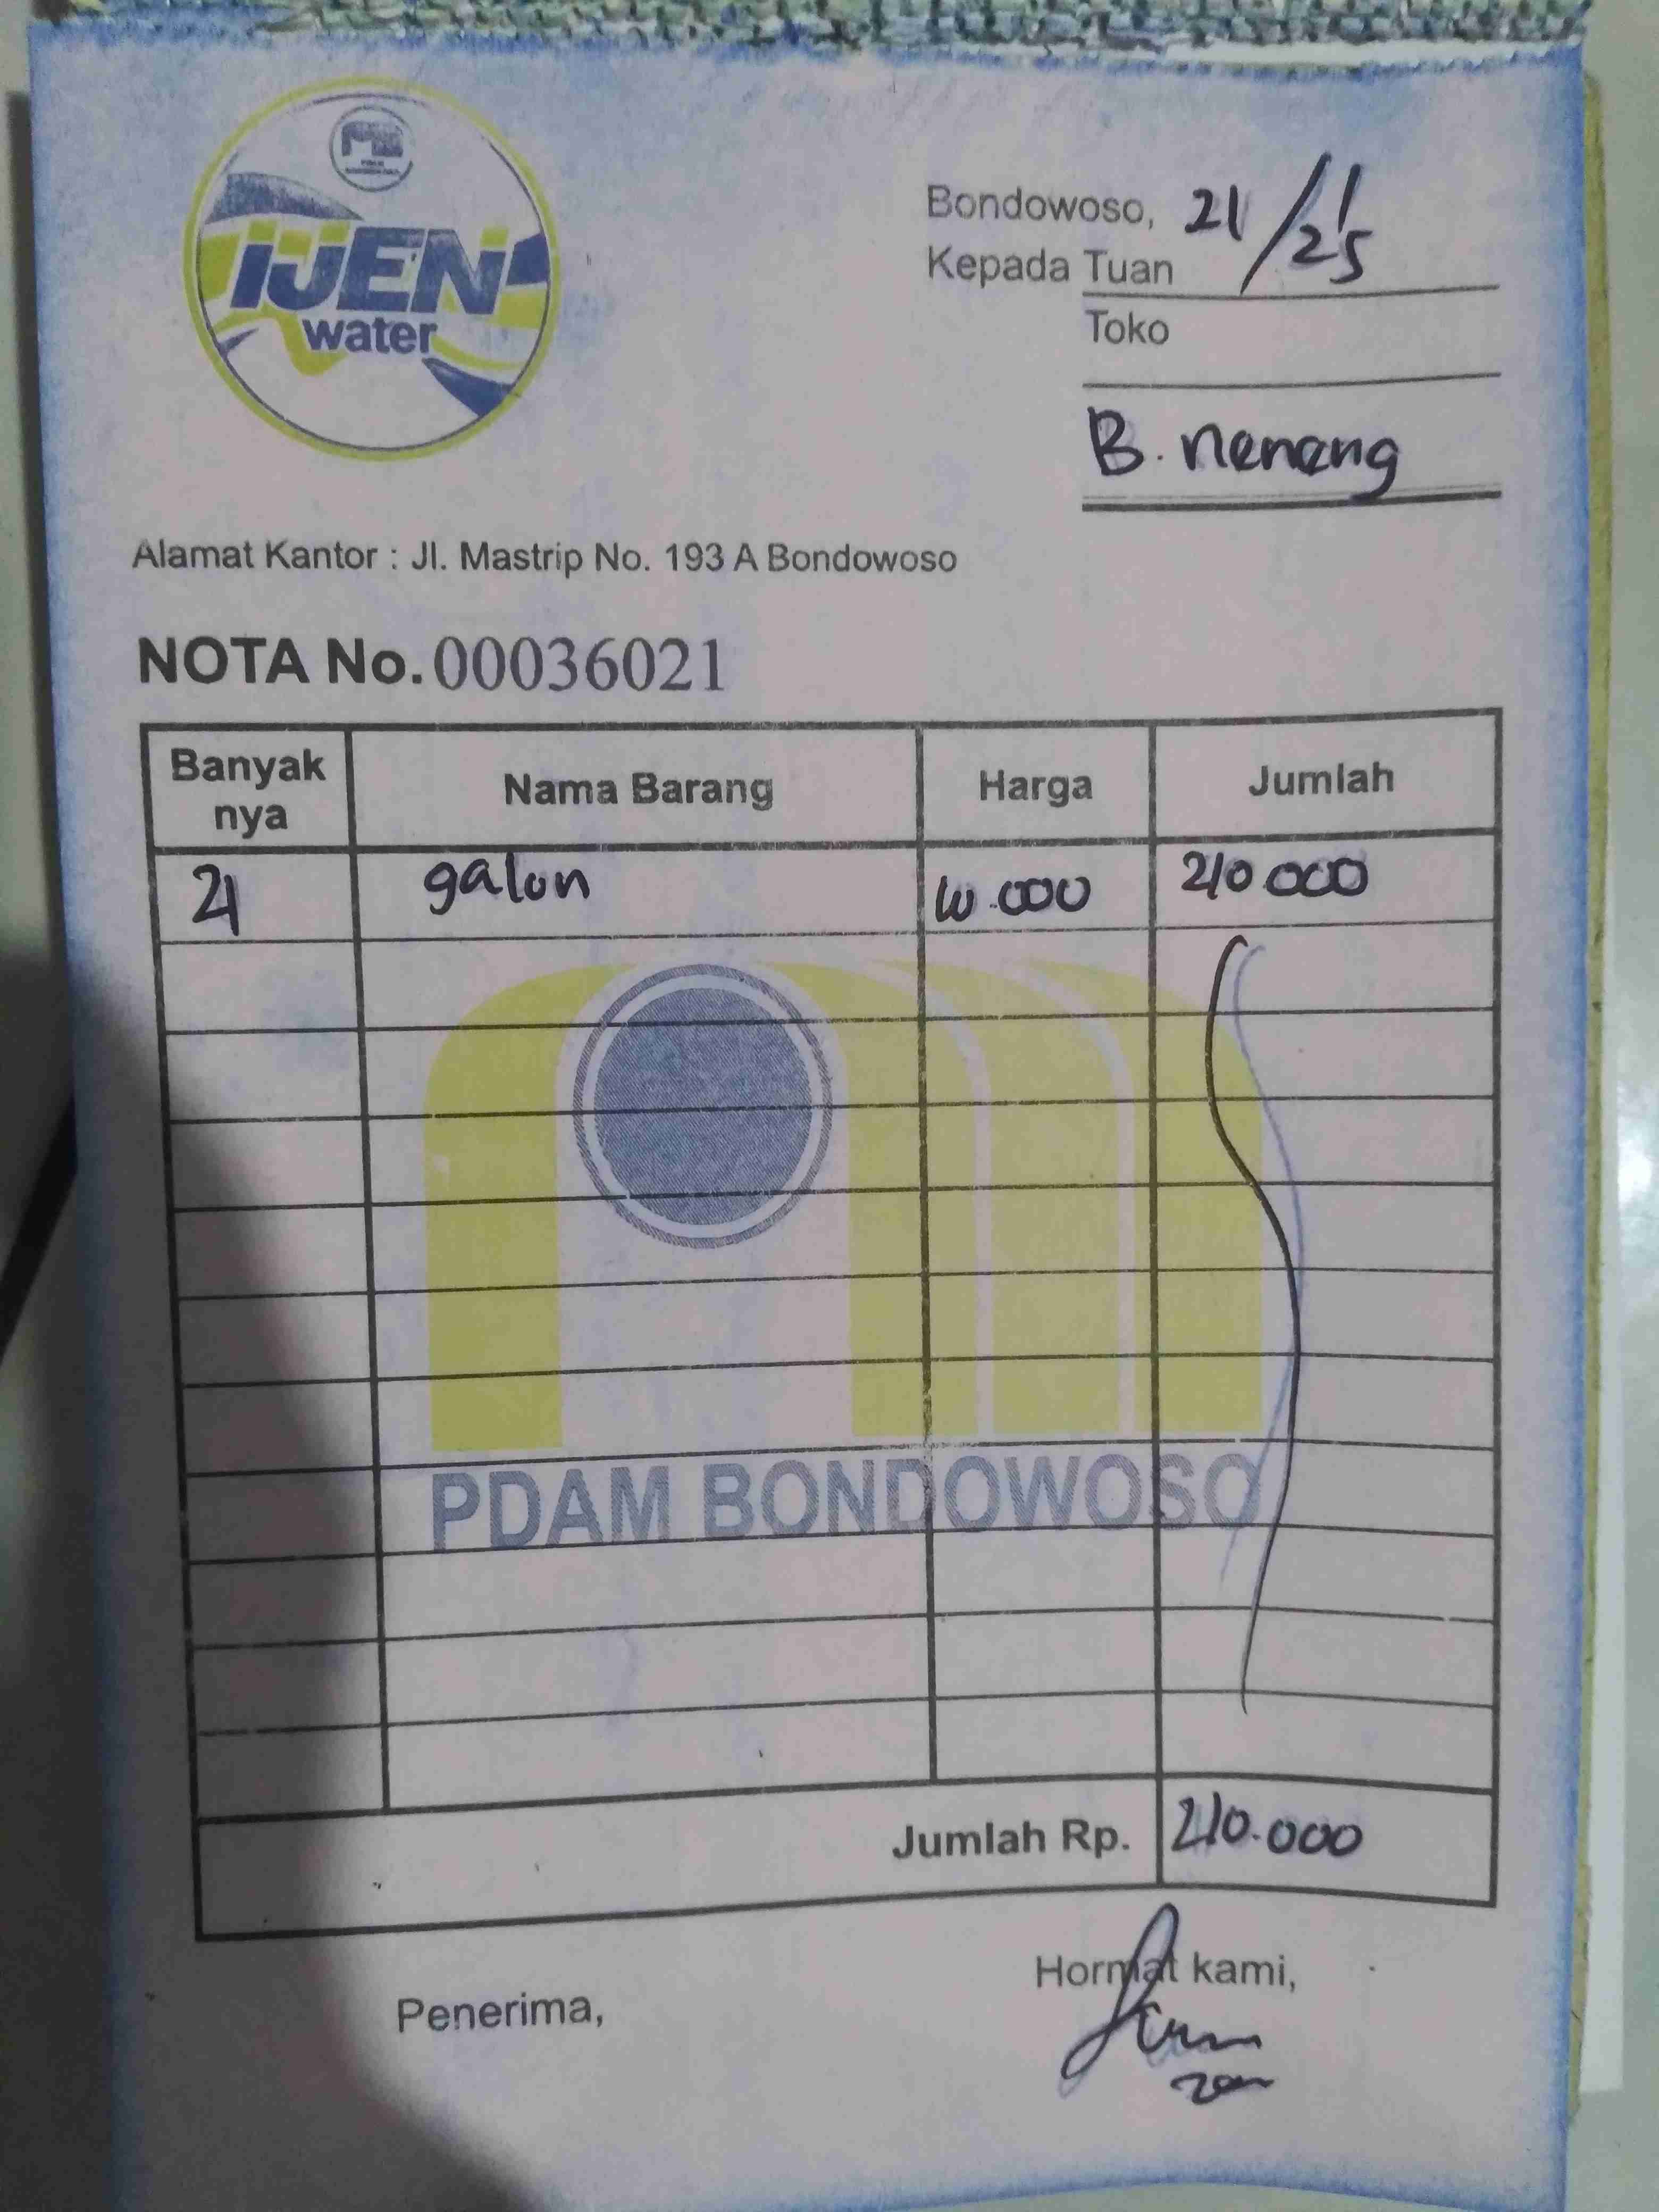 IJEN
water
Bondowoso, 21/1/25
Kepada Tuan
Toko
B. nenang
Alamat Kantor : Jl. Mastrip No. 193 A Bondowoso
NOTA No. 00036021
Banyak nya Nama Barang Harga Jumlah
21 galon 10.000 210.000
PDAM BONDOWOSO
Jumlah Rp. 210.000
Penerima, Hormat kami,